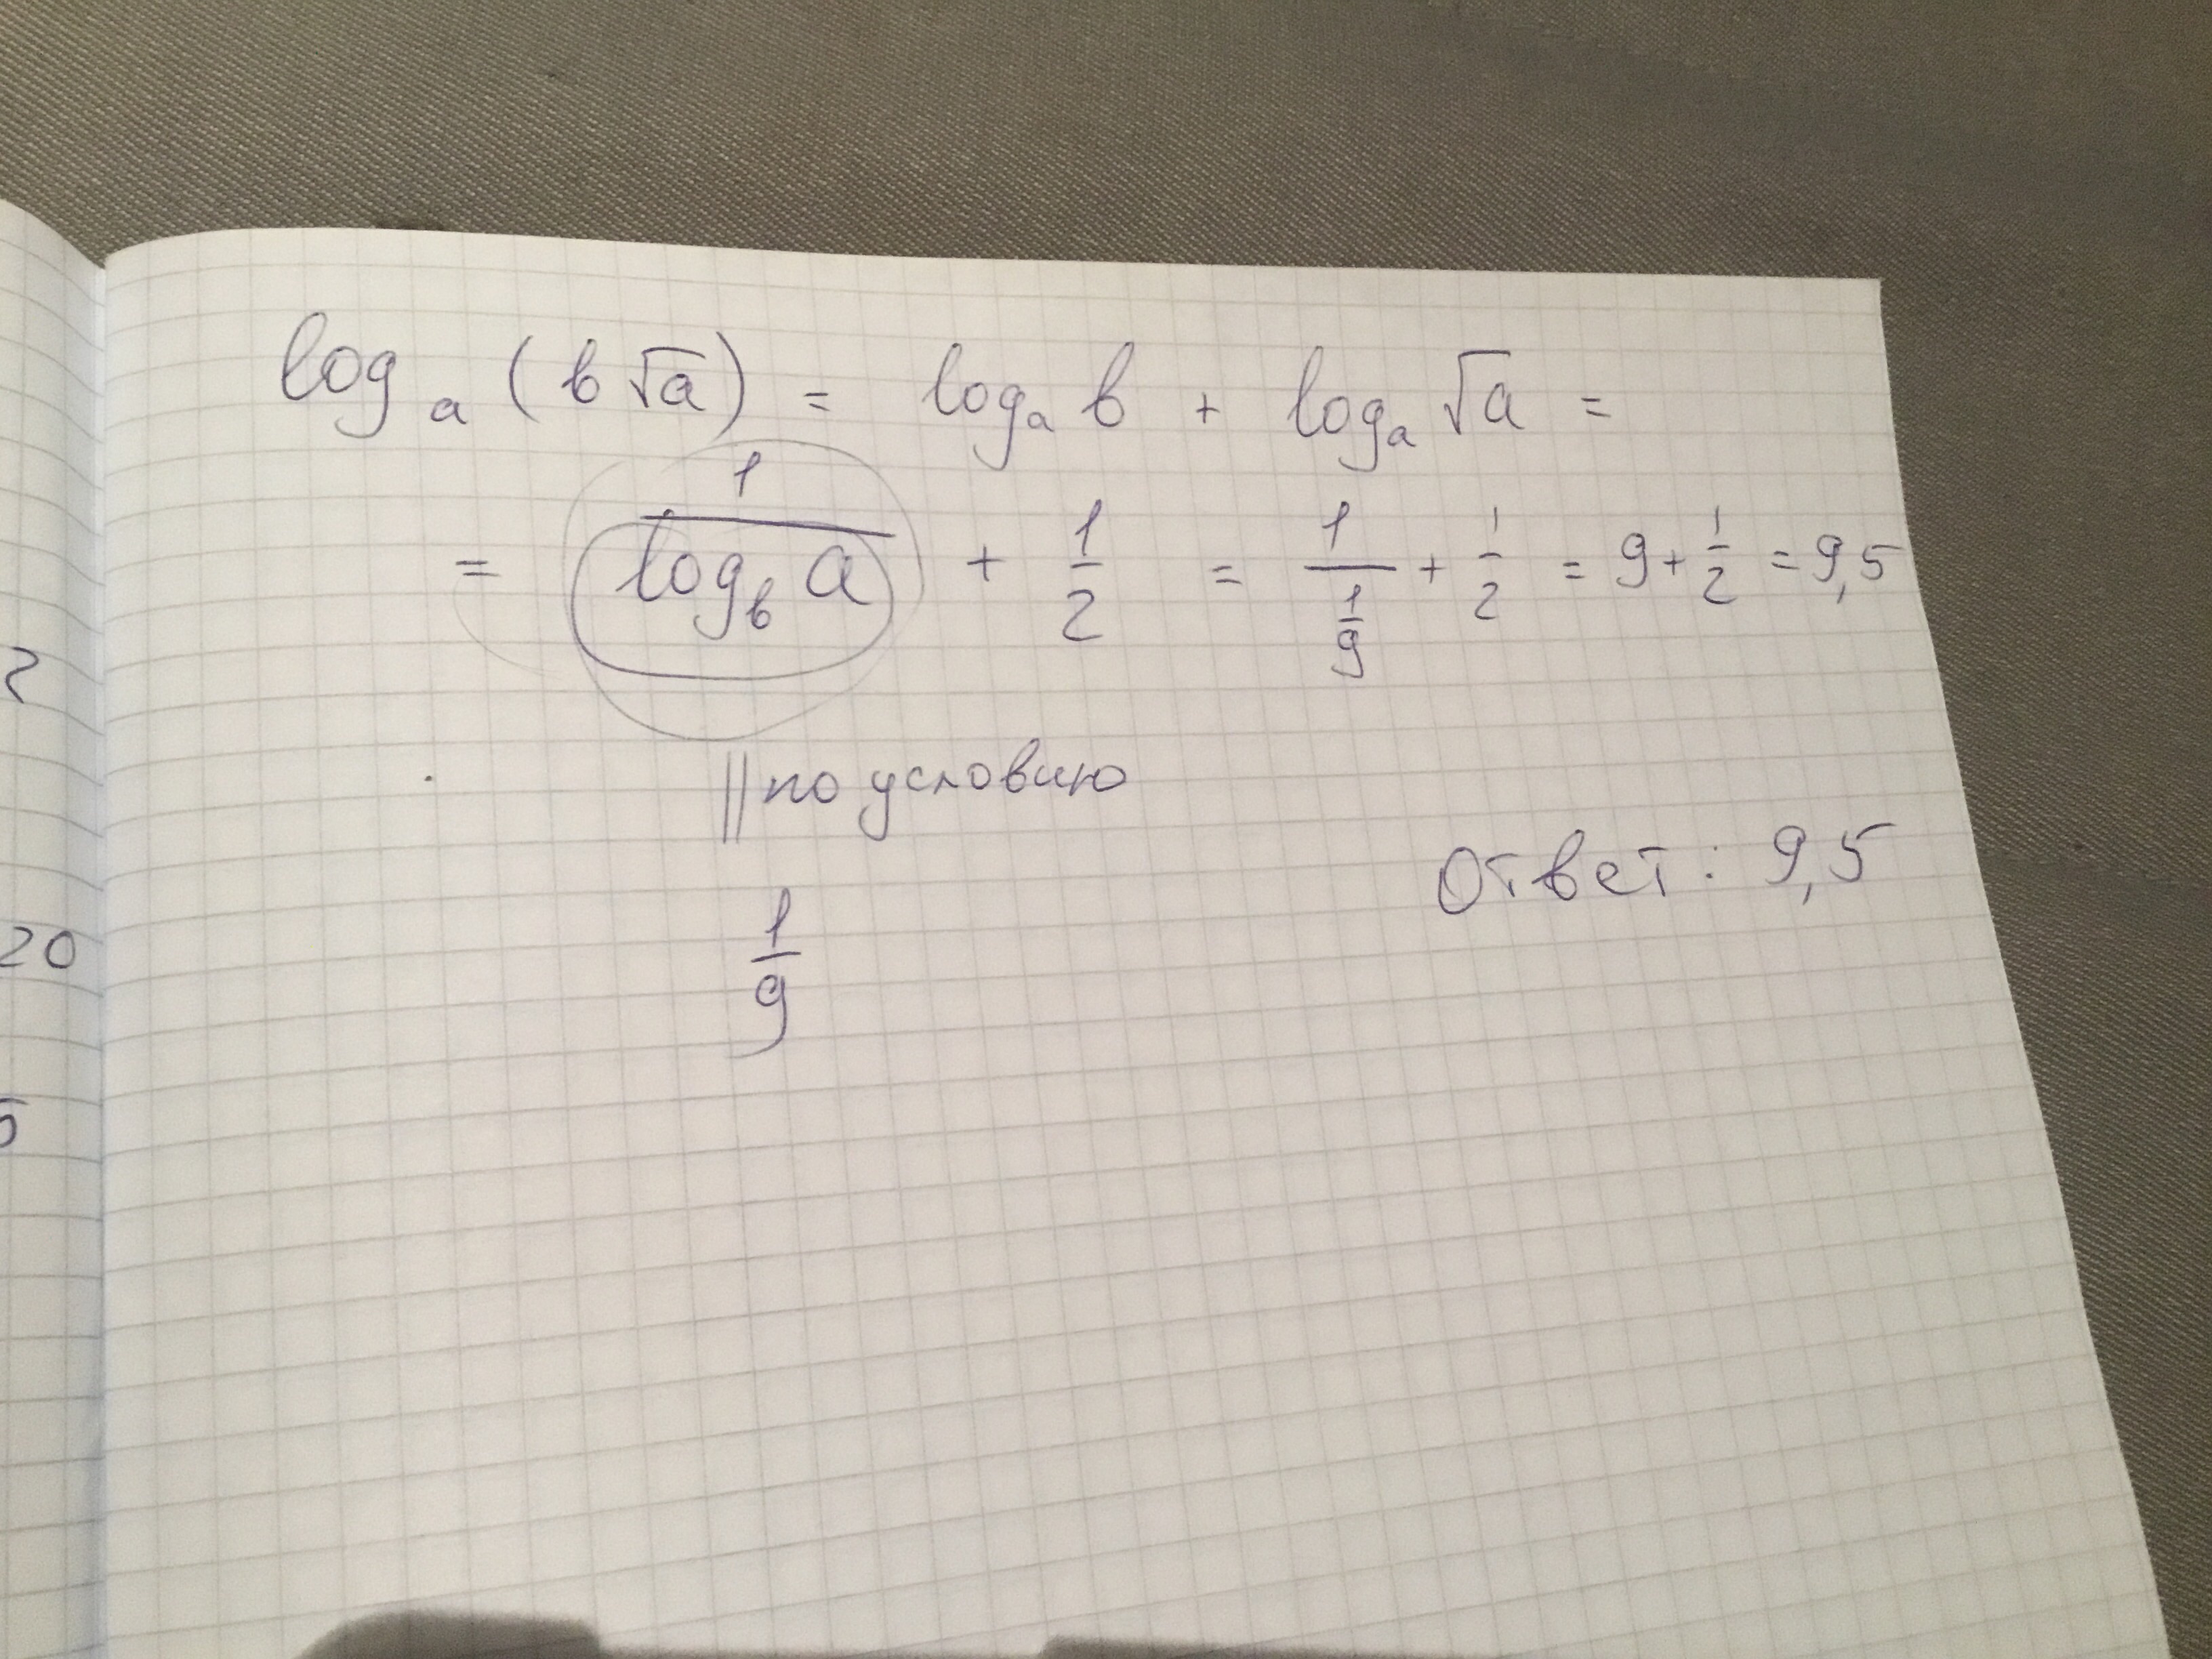 log a (в √a) = log a в + log a √a =
= 1/(log в a) + 1/2 = 1/(1/9) + 1/2 = 9 + 1/2 = 9,5
|| по условию
1/9
Ответ: 9,5
2
20
5